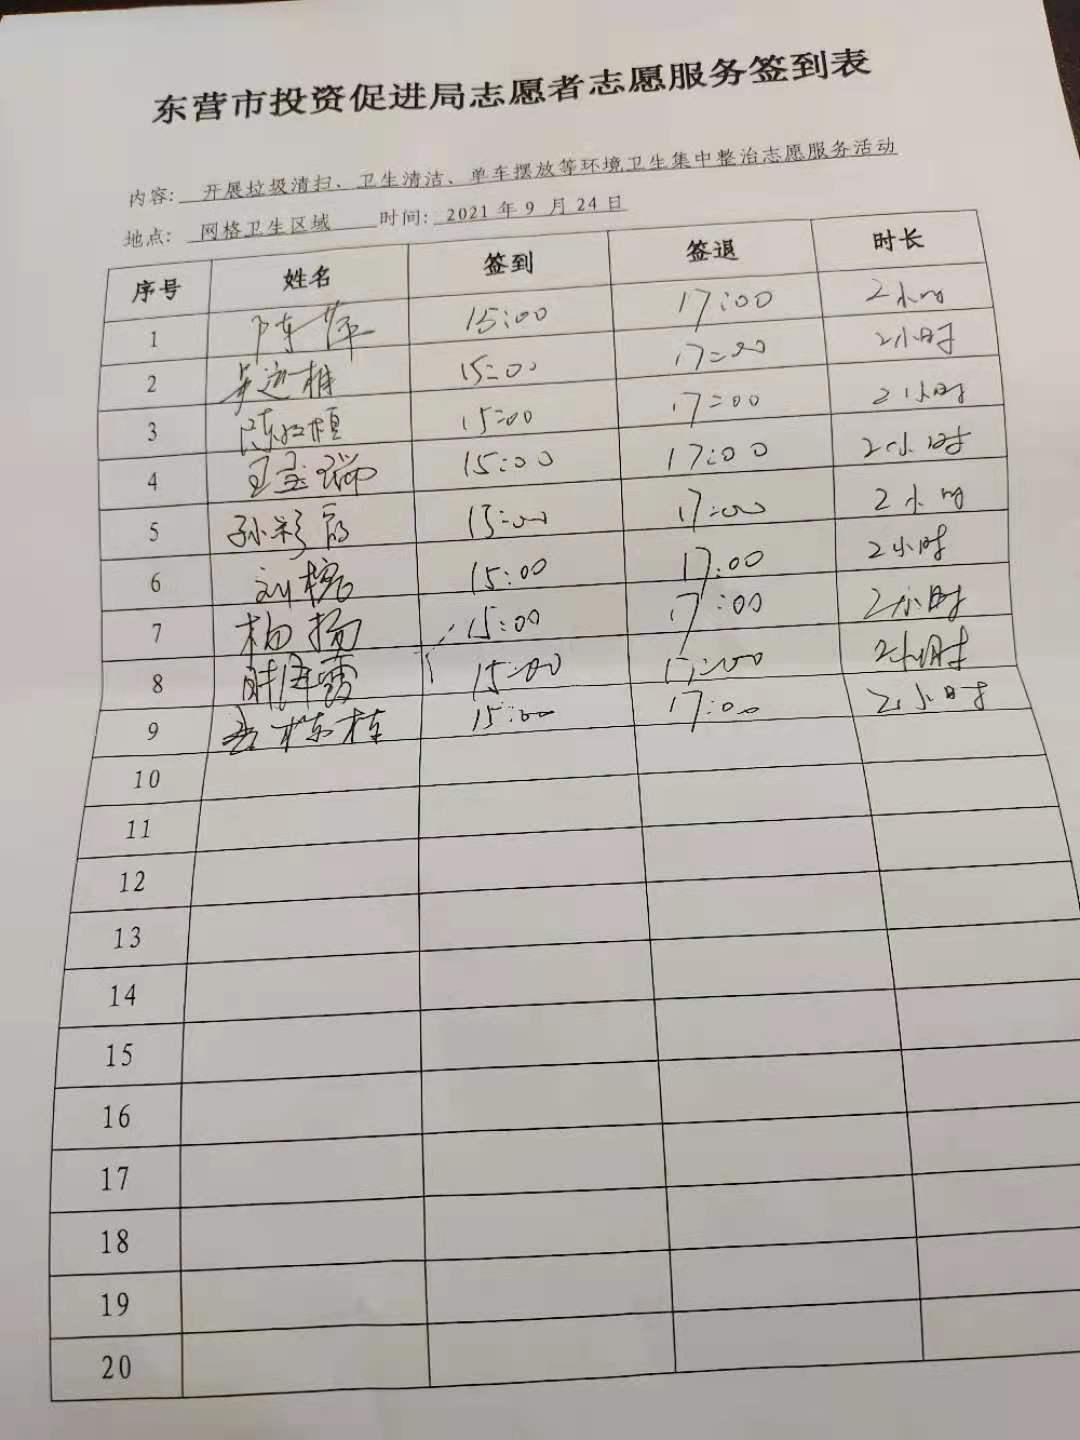 东营市投资促进局志愿者志愿服务签到表
内容: 开展垃圾清扫、卫生清洁、单车摆放等环境卫生集中整治志愿服务活动
地点: 网格卫生区域 时间: 2021年9月24日
序号 姓名 签到 签退 时长
1 陈萍 15:00 17:00 2小时
2 15:00 17:00 2小时
3 15:00 17:00 2小时
4 王宝瑞 15:00 17:00 2小时
5 孙彩 15:00 17:00 2小时
6 刘 15:00 17:00 2小时
7 杨扬 15:00 17:00 2小时
8 15:00 17:00 2小时
9 栋栋 15:00 17:00 2小时
10
11
12
13
14
15
16
17
18
19
20